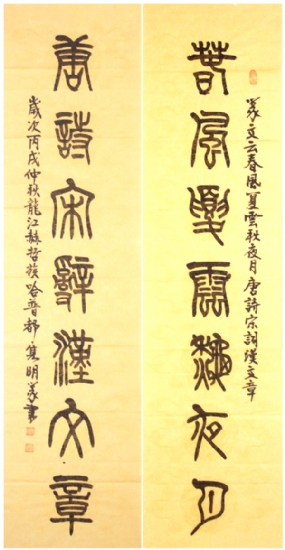 篆文云春風夏雲秋夜月唐詩宋詞漢文章
春風夏雲秋夜月
唐詩宋辭漢文章
歲次丙戌仲秋龍江赫哲族哈普都·雋明篆書